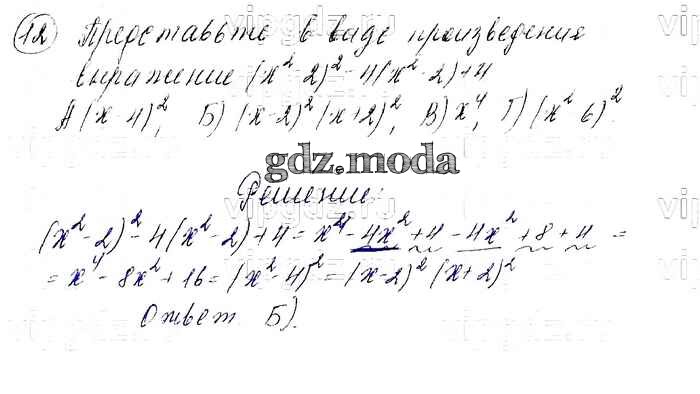 12 Представьте в виде произведения
выражение (x² - 2)² - 4(x² - 2) + 4
А) (x - 4)², Б) (x - 2)² (x + 2)², В) x⁴, Г) (x² - 6)²
gdz.moda
Решение:
(x² - 2)² - 4(x² - 2) + 4 = x⁴ - 4x² + 4 - 4x² + 8 + 4 =
= x⁴ - 8x² + 16 = (x² - 4)² = (x - 2)² (x + 2)²
Ответ Б).